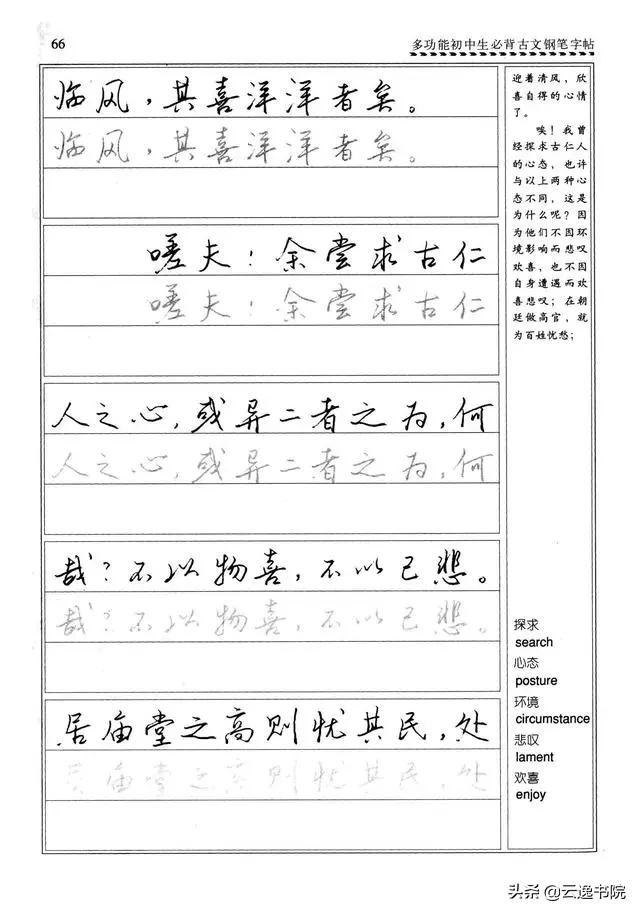 66
多功能初中生必背古文钢笔字帖
临风，其喜洋洋者矣。
临风，其喜洋洋者矣。
嗟夫！余尝求古仁
嗟夫！余尝求古仁
人之心，或异二者之为，何
人之心，或异二者之为，何
哉？不以物喜，不以己悲。
哉？不以物喜，不以己悲。
居庙堂之高则忧其民，处
居庙堂之高则忧其民，处
迎着清风，欣
喜自得的心情
了。
唉！我曾
经探求古仁人
的心态，也许
与以上两种心
态不同，这是
为什么呢？因
为他们不因环
境影响而悲叹
欢喜，也不因
自身遭遇而欢
喜悲叹；在朝
廷做高官，就
为百姓忧愁；
探求
search
心态
posture
环境
circumstance
悲叹
lament
欢喜
enjoy
头条@云逸书院